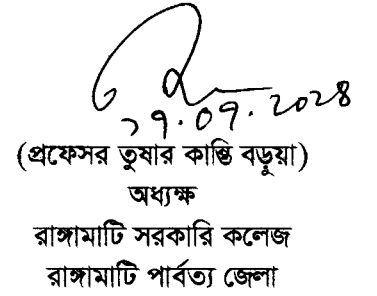 ২৭.০৭.২০২৪
(প্রফেসর তুষার কান্তি বড়ুয়া)
অধ্যক্ষ
রাঙ্গামাটি সরকারি কলেজ
রাঙ্গামাটি পার্বত্য জেলা